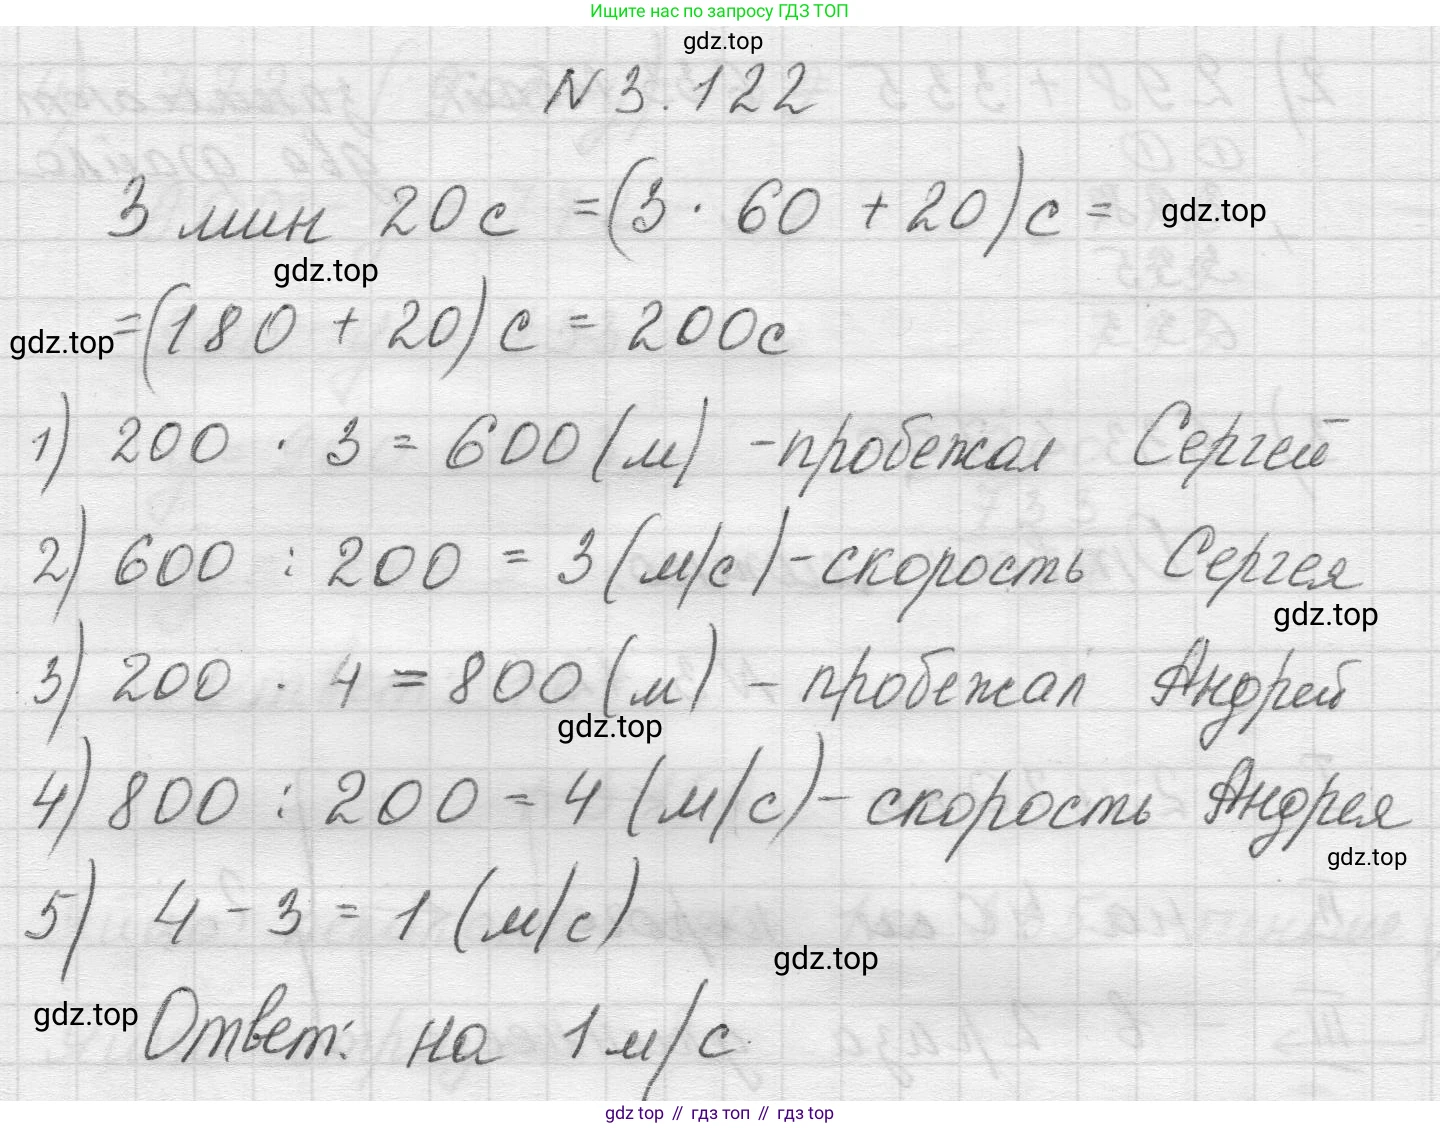 Ищите нас по запросу ГДЗ ТОП
gdz.top
N 3.122
3 мин 20 с = (3 · 60 + 20) с =
gdz.top
gdz.top
= (180 + 20) с = 200с
gdz.top
1) 200 · 3 = 600 (м) - пробежал Сергей
2) 600 : 200 = 3 (м/с) - скорость Сергея
gdz.top
3) 200 · 4 = 800 (м) - пробежал Андрей
gdz.top
4) 800 : 200 = 4 (м/с) - скорость Андрея
gdz.top
5) 4 - 3 = 1 (м/с)
gdz.top
gdz.top
Ответ: на 1 м/с.
gdz top // гдз топ // гдз top